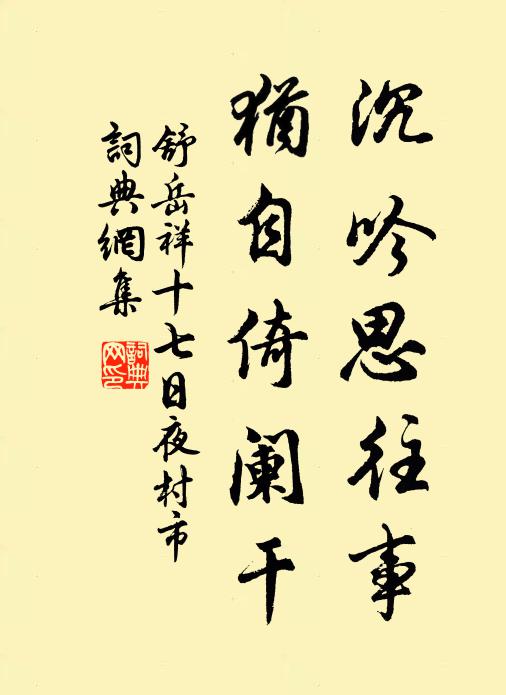 沉吟思往事
猶自倚阑干
舒岳祥十七日夜村市
詞典網集
詞典
网印